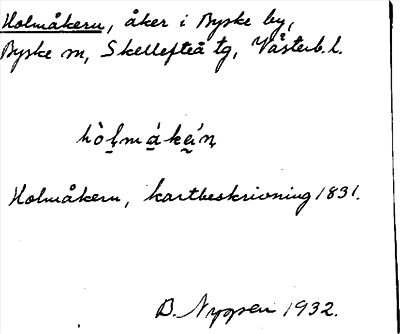 Holmåkern, åker i Byske by,
Byske sn, Skellefteå tg, Västerb. l.
hòl̥mák̬e̬ń̥
Holmåkern, kartbeskrivning 1831.
B. 1932.